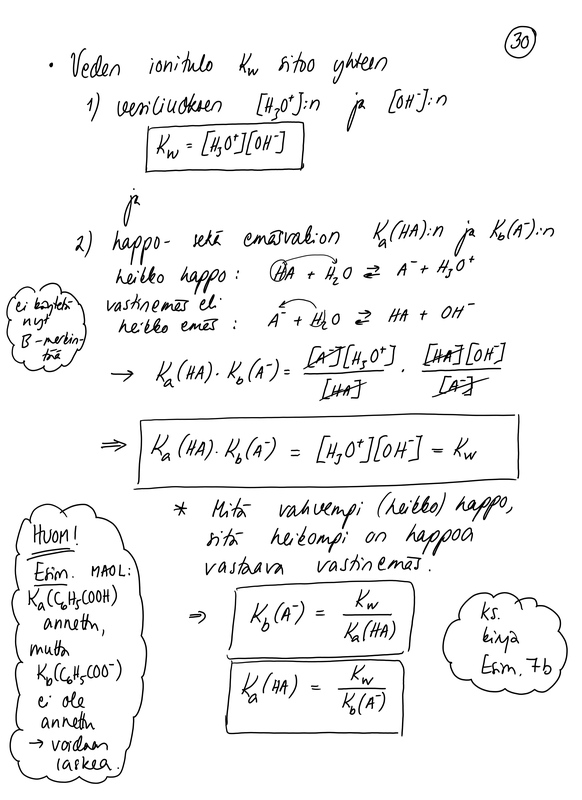 30
• Veden ionitulo Kw sitoo yhteen
1) vesiliuoksen [H₃O⁺]:n ja [OH⁻]:n
Kw = [H₃O⁺][OH⁻]
ja
2) happo- sekä emäsvakion Ka(HA):n ja Kb(A⁻):n
heikko happo: HA + H₂O ⇄ A⁻ + H₃O⁺
vastinemäs eli
heikko emäs: A⁻ + H₂O ⇄ HA + OH⁻
ei käytetä
nyt
B-merkin-
tää
→ Ka(HA)·Kb(A⁻) = [A⁻][H₃O⁺]/[HA] · [HA][OH⁻]/[A⁻]
⇒ Ka(HA)·Kb(A⁻) = [H₃O⁺][OH⁻] = Kw
* Mitä vahvempi (heikko) happo,
sitä heikompi on happoa
vastaava vastinemäs.
⇒ Kb(A⁻) = Kw/Ka(HA)
Ka(HA) = Kw/Kb(A⁻)
HUOM!
Esim. MAOL:
Ka(C₆H₅COOH)
annettu,
mutta
Kb(C₆H₅COO⁻)
ei ole
annettu
→ voidaan
laskea.
ks.
kirja
Esim. 7b